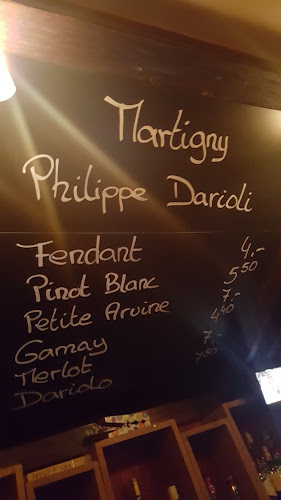 Martigny
Philippe Darioli
Fendant 4.-
Pinot Blanc 5.50
Petite Arvine 7.-
Gamay 4.40
Merlot 7.-
Dariolo 7.50